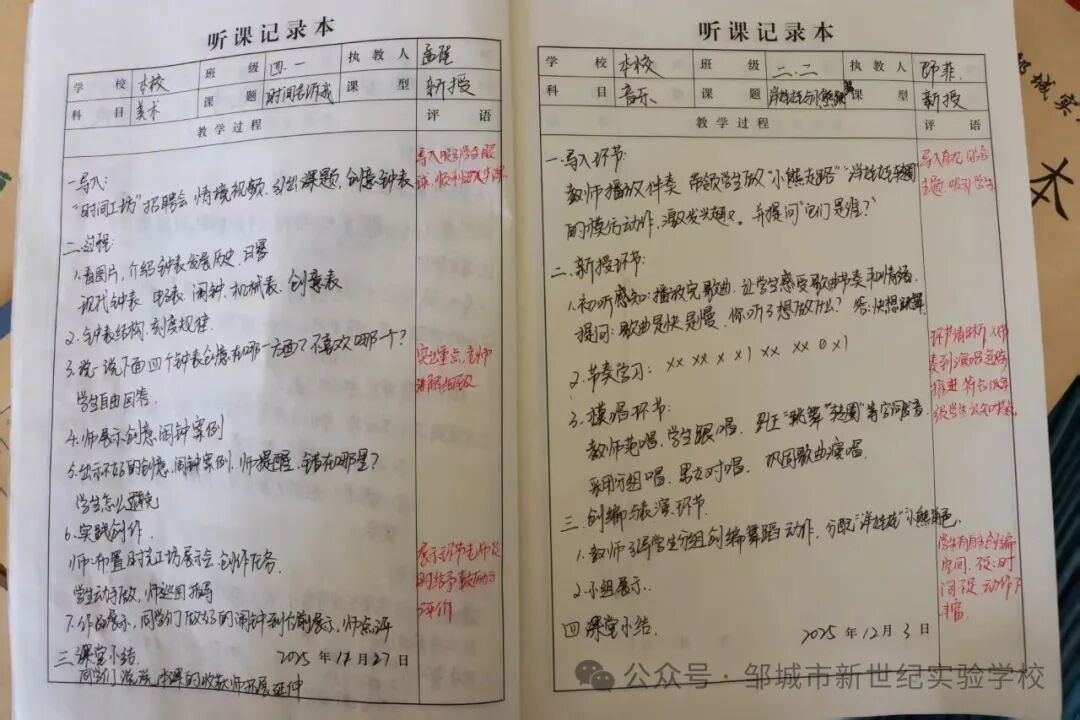 听课记录本
学校 本校 班级 四.一 执教人 孟
科目 美术 课题 时间告诉我 课型 新授
教学过程 评语
一.导入:
"时间工坊"招聘会 情境视频, 引出课题, 创意钟表
导入吸引学生眼
球,顺利进入
二.过程:
1.看图片,介绍钟表发展历史.日晷
现代钟表 电子表 闹钟,机械表.创意表
2.钟表结构,刻度规律.
3.说一说下面四个钟表创意在哪一方面?不喜欢哪一个?
学生自由回答.
突出重点,老师
讲解细致
4.师展示创意闹钟案例
5.出示不好的创意闹钟案例,师提醒,错在哪里?
学生怎么避免
6.实践创作.
师:布置时光工坊展示会 创作任务.
学生动手做,师巡回指导
7.作品展示,同学们做好的闹钟到台前展示,师点评
展示环节老师及
时给予鼓励与
评价
三.课堂小结.
同学们说说本课的收获,师拓展延伸
2025年11月27日
听课记录本
学校 本校 班级 二.二 执教人 邱菲.
科目 音乐 课题 洋娃娃与小熊跳舞 课型 新授
教学过程 评语
一.导入环节:
教师播放伴奏 带领学生做"小熊走路""洋娃娃转圈"
的模仿动作,激发兴趣,并提问"它们是谁?"
导入有趣,贴合
主题,吸引学生
二.新授环节:
1.初听感知:播放完歌曲,让学生感受歌曲节奏和情绪.
提问:歌曲是快是慢,你听了想做什么?答:快想跳舞
2.节奏学习: xx xx x x| xx xx 0 x|
3.模唱环节:
教师范唱,学生跟唱.纠正"跳舞""转圈"等字词唱音.
采用分组唱,男女对唱.巩固歌曲演唱.
环节清晰,从节
奏到演唱逐步
推进 符合低年
级学生认知
三.创编与表演环节.
1.教师引导学生分组创编舞蹈动作,分配"洋娃娃"小熊角色,
2.小组展示.
学生有自主创编
空间,但时
间不足 动作不
丰富.
四.课堂小结.
2025年12月3日
公众号·邹城市新世纪实验学校
本